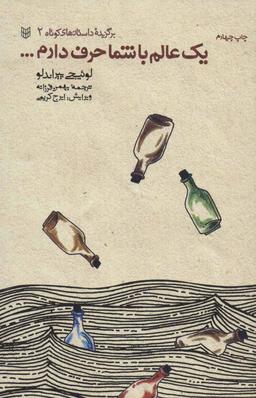 چاپ چهارم
برگزیدهٔ داستان‌های کوتاه ۲
یک عالم با شما حرف دارم ...
لوئیجی پیراندلو
ترجمهٔ بهمن فرزانه
ویرایش: ایرج کریمی